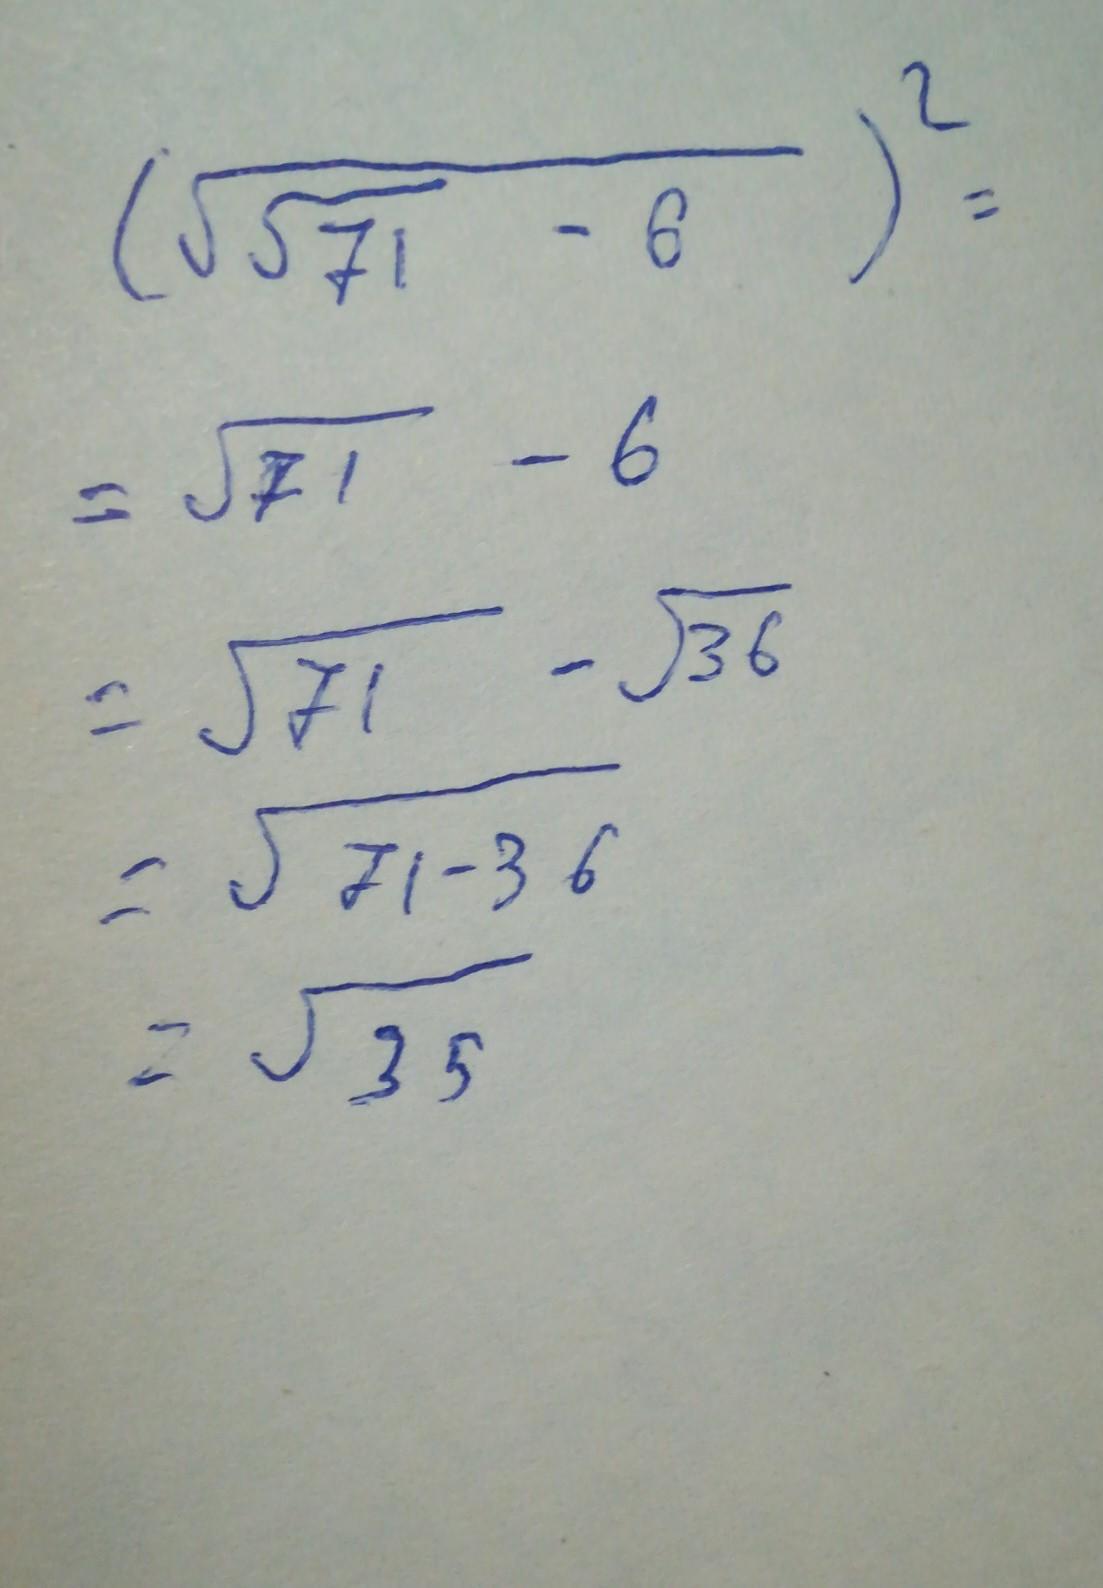 (√(√71 - 6))² =
= √71 - 6
= √71 - √36
= √(71-36)
= √35